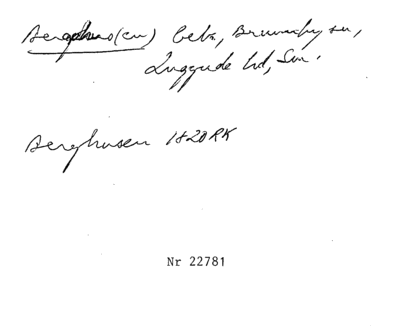 Berghus(en) beb, Brunnby sn,
Luggude hd, Sm.
Berghusen 1820 RK
Nr 22781